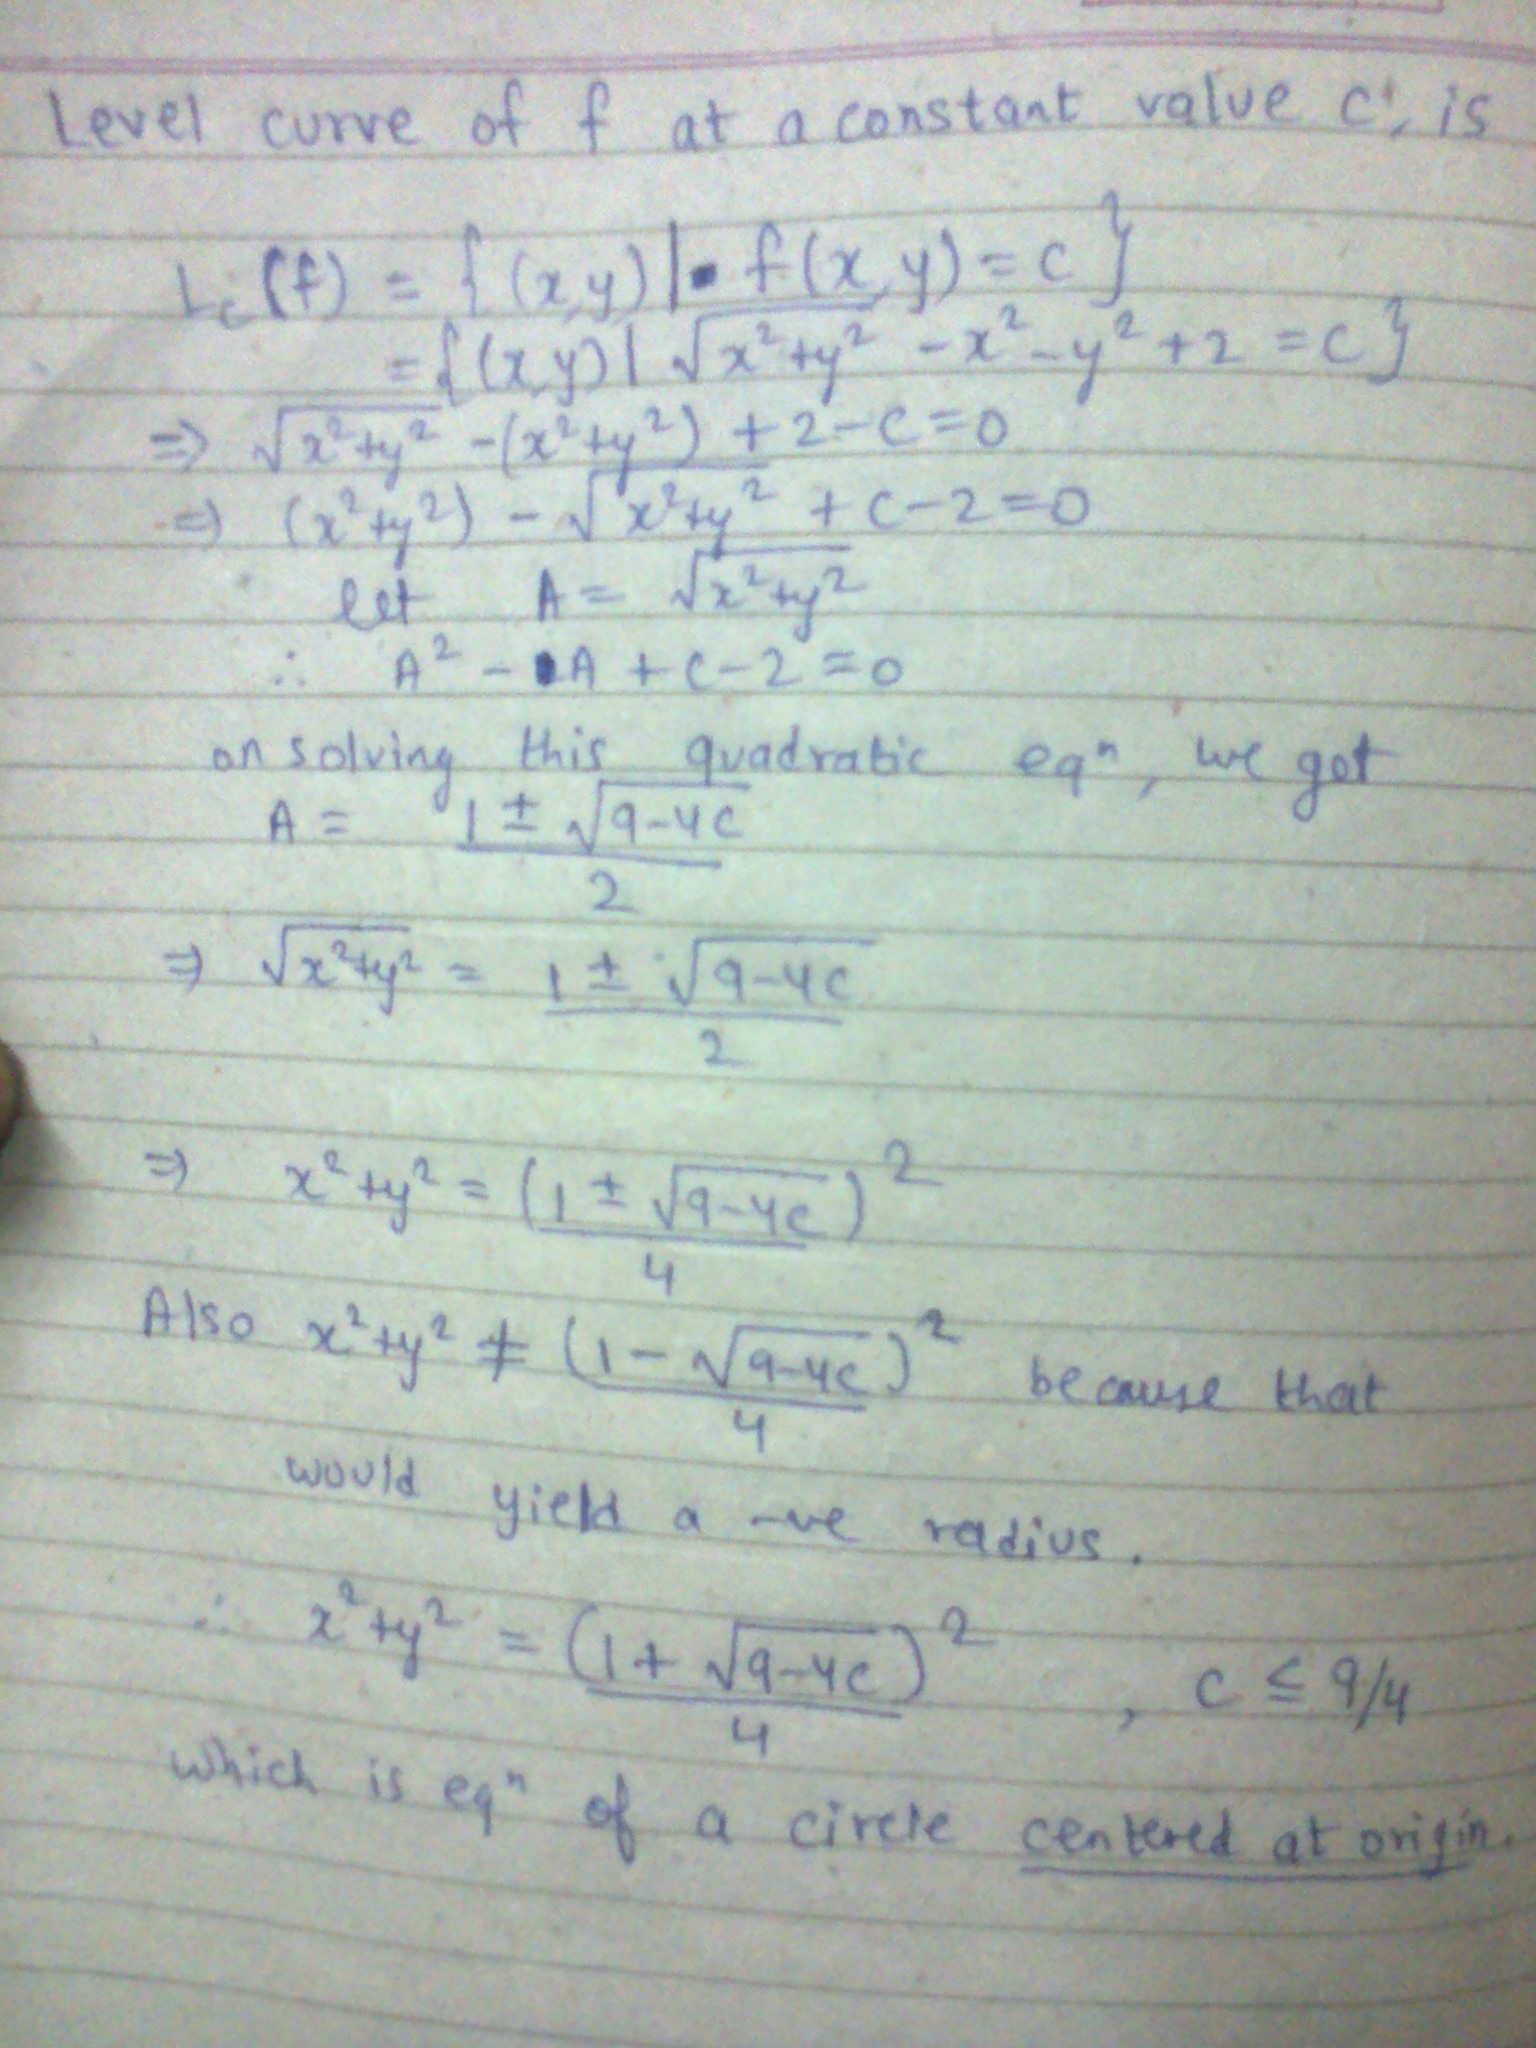 Level curve of f at a constant value c', is
L_c(f) = {(x,y) | f(x,y) = c}
= {(x,y) | √(x²+y²) - x² - y² + 2 = c}
⇒ √(x²+y²) - (x²+y²) + 2 - c = 0
⇒ (x²+y²) - √(x²+y²) + c - 2 = 0
let A = √(x²+y²)
∴ A² - A + c - 2 = 0
on solving this quadratic eqⁿ, we get
A = (1 ± √(9-4c))/2
⇒ √(x²+y²) = (1 ± √(9-4c))/2
⇒ x²+y² = (1 ± √(9-4c))²/4
Also x²+y² ≠ (1 - √(9-4c))²/4 because that
would yield a -ve radius.
∴ x²+y² = (1 + √(9-4c))²/4 , c ≤ 9/4
which is eqⁿ of a circle centered at origin.